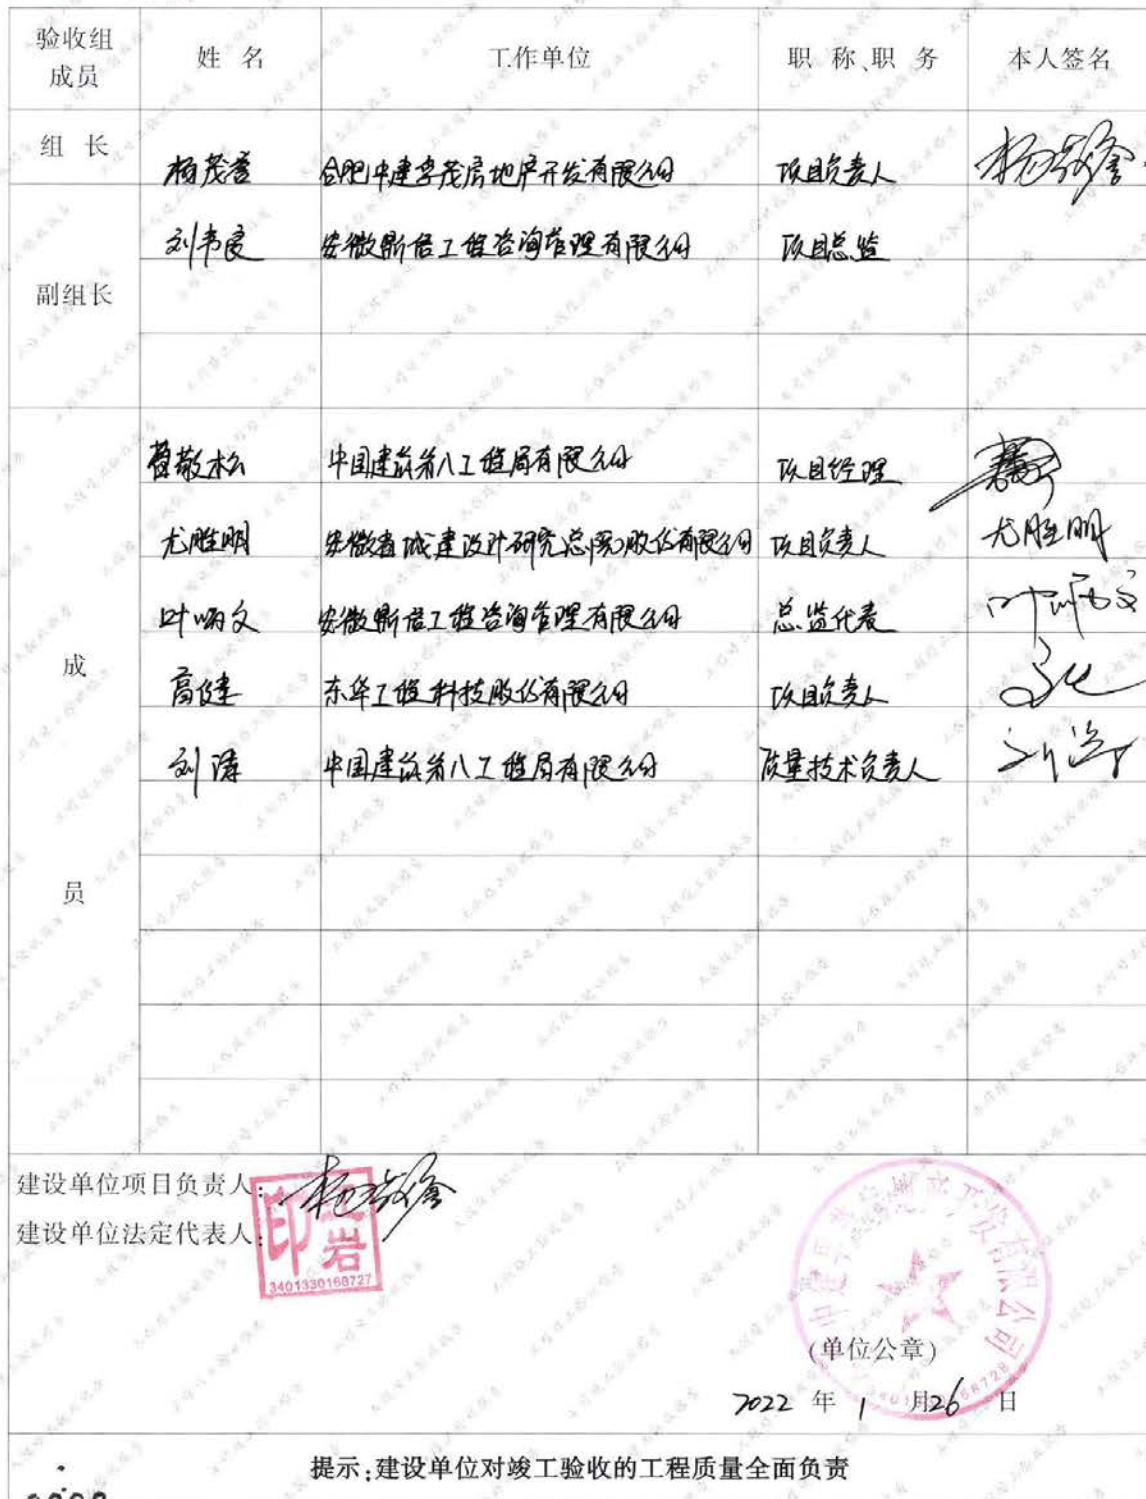 验收组成员 姓 名 工作单位 职 称、职 务 本人签名
组 长 杨茂 合肥中建孚茂房地产开发有限公司 项目负责人
副组长 刘韦良 安徽斯信工程咨询管理有限公司 项目总监
成员
敬松 中国建筑第八工程局有限公司 项目经理
尤胜明 安徽省城建设计研究总院股份有限公司 项目负责人 尤胜明
叶炳文 安徽斯信工程咨询管理有限公司 总监代表 叶炳文
高健 东华工程科技股份有限公司 项目负责人
刘涛 中国建筑第八工程局有限公司 质量技术负责人 刘涛
建设单位项目负责人:
建设单位法定代表人:
印 岩
3401330168727
房地产开发有限公司
(单位公章)
2022 年 1 月 26 日
提示:建设单位对竣工验收的工程质量全面负责